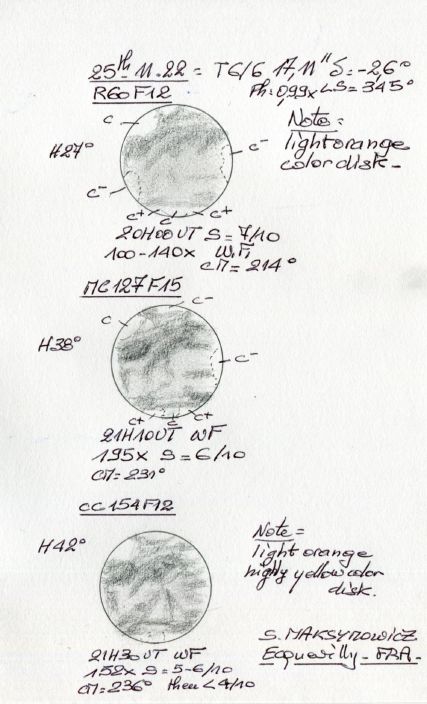 25th 11.22 = T6/6 17,11" δ=-2,6°
R60F12 Ph=0,99x LS=345°
C
Note=
H27° C- light orange
color disk-
C-
C+ C C+
20H00UT S=7/10
100-140x W.F,
CM=214°
MC127F15
C-
C
H38° C-
C+ C C+
21H10UT WF
195x S=6/10
CM=231°
CC154F12
H42° Note=
light orange
highly yellow color
disk.
S. MAKSYMOWICZ
21H30UT WF Ecquevilly-FRA-
152x S=5-6/10
CM=236° then <4/10